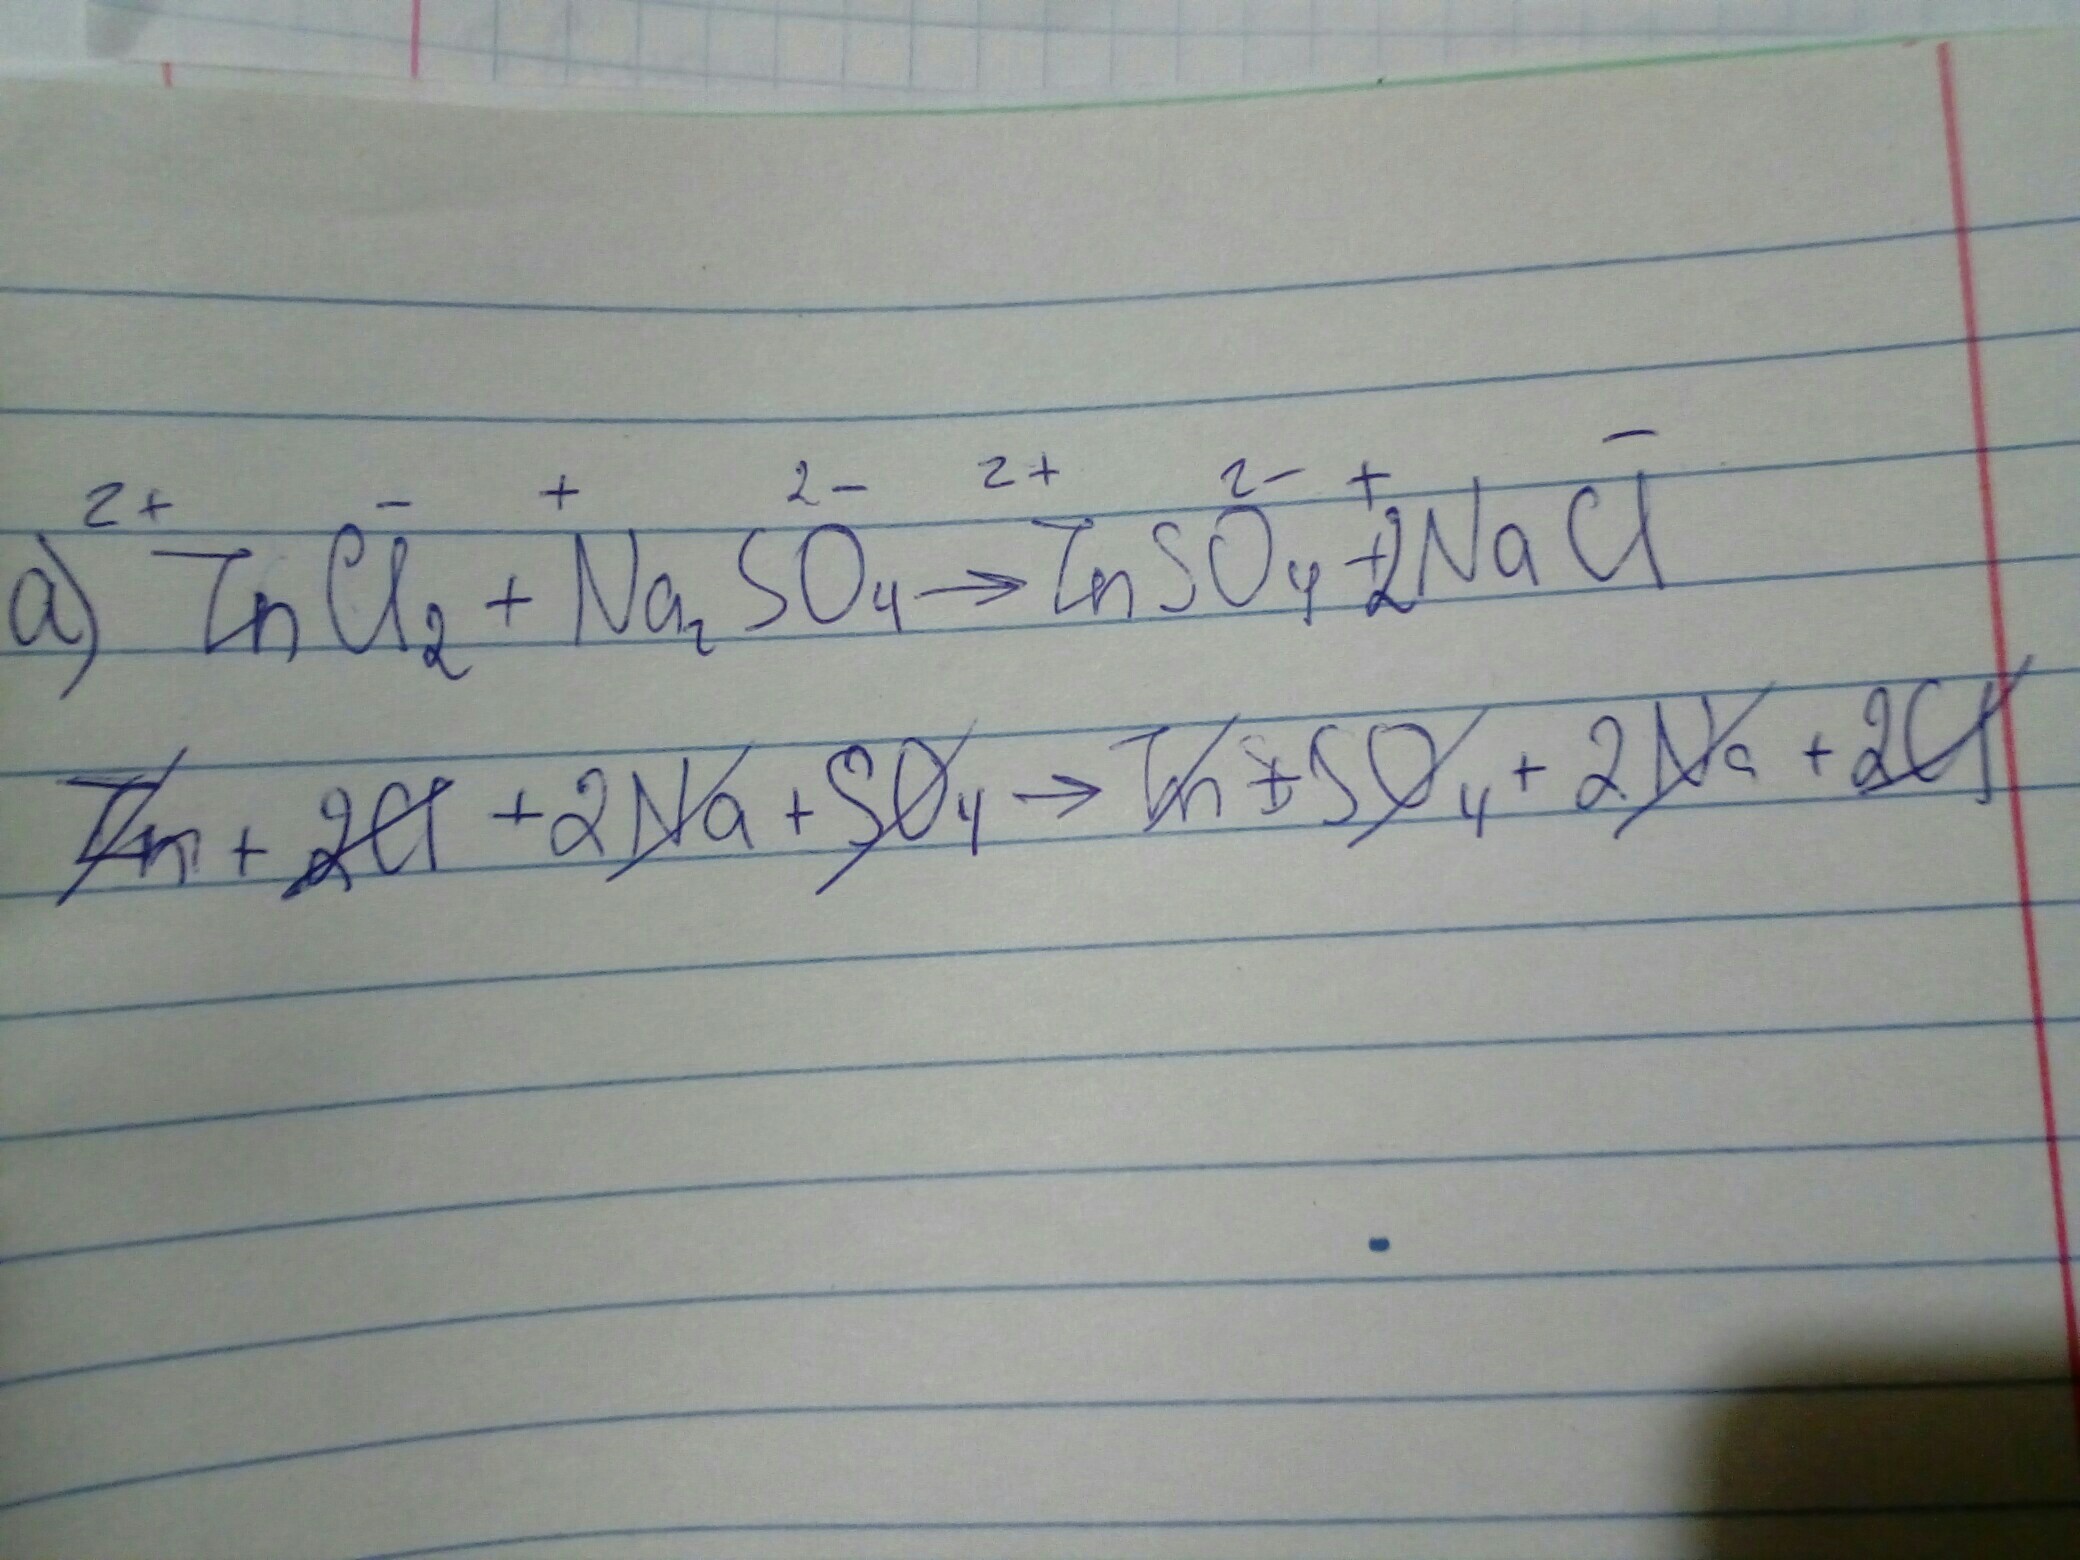 2+ - + 2- 2+ 2- + -
a) ZnCl₂ + Na₂SO₄ → ZnSO₄ + 2NaCl
Zn + 2Cl + 2Na + SO₄ → Zn + SO₄ + 2Na + 2Cl